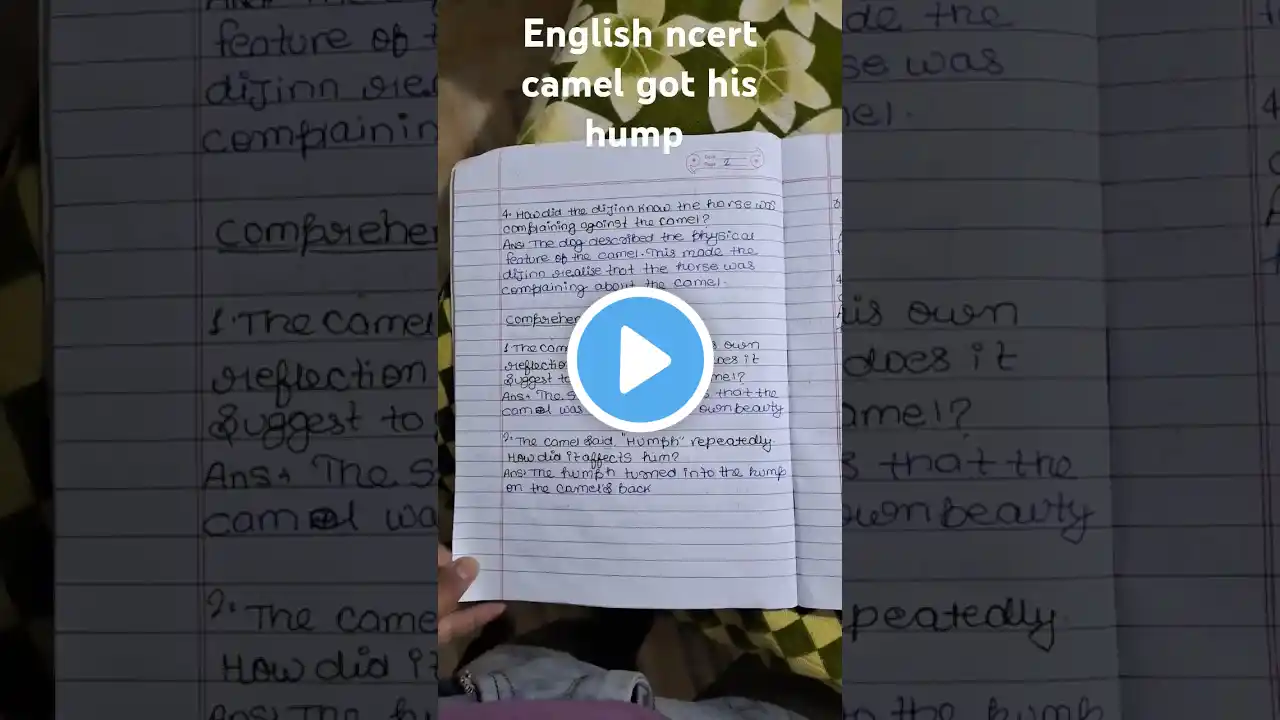 English ncert
camel got his
hump
Page 2
4. How did the dijinn know the horse was
complaining against the camel?
Ans: The dog described the physical
feature of the camel. This made the
dijinn realise that the horse was
complaining about the camel.
1. The cam own
reflection does it
suggest to mel?
Ans: The s that the
camel was own beauty
2. The camel said "Humph" repeatedly.
How did it affects him?
Ans: The humph turned into the hump
on the camel's back